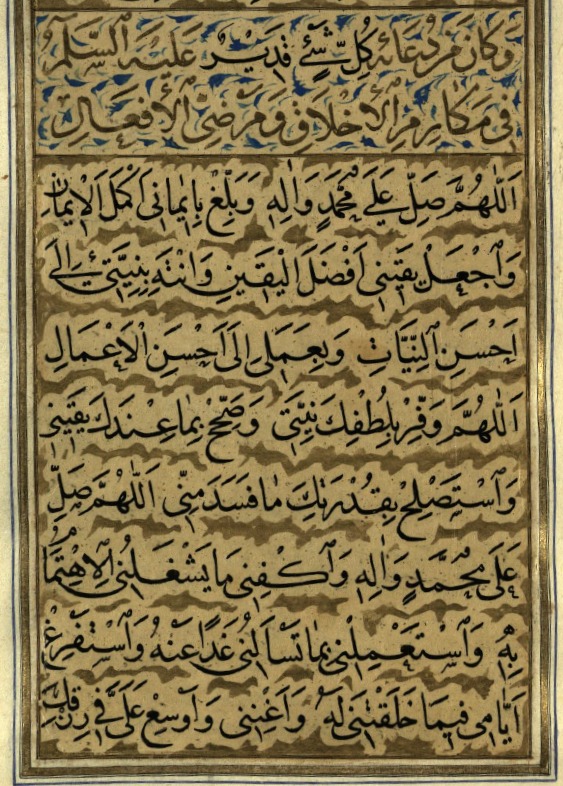 وَكَانَ مِنْ دُعَائِهِ كُلِّ شَيْءٍ قَدِيرٌ عَلَيْهِ السَّلَمُ
فِي مَكَارِمِ الْأَخْلَاقِ وَمَرْضِيِّ الْأَفْعَالِ
اَللّٰهُمَّ صَلِّ عَلَى مُحَمَّدٍ وَاٰلِهِ وَبَلِّغْ بِاِيمَانِى اَكْمَلَ الْاِيمَانِ
وَاجْعَلْ يَقِينِى اَفْضَلَ الْيَقِينِ وَانْتَهِ بِنِيَّتِى اِلَى
اَحْسَنِ النِّيَّاتِ وَبِعَمَلِى اِلَى اَحْسَنِ الْاَعْمَالِ
اَللّٰهُمَّ وَفِّرْ بِلُطْفِكَ نِيَّتِى وَصَحِّحْ بِمَا عِنْدَكَ يَقِينِى
وَاسْتَصْلِحْ بِقُدْرَتِكَ مَا فَسَدَ مِنِّى اَللّٰهُمَّ صَلِّ
عَلَى مُحَمَّدٍ وَاٰلِهِ وَاكْفِنِى مَا يَشْغَلُنِى الْاِهْتِمَامُ
بِهِ وَاسْتَعْمِلْنِى بِمَا تَسْاَلُنِى غَدًا عَنْهُ وَاسْتَفْرِغْ
اَيَّامِى فِيمَا خَلَقْتَنِى لَهُ وَاَغْنِنِى وَاَوْسِعْ عَلَىَّ فِى رِزْقِكَ